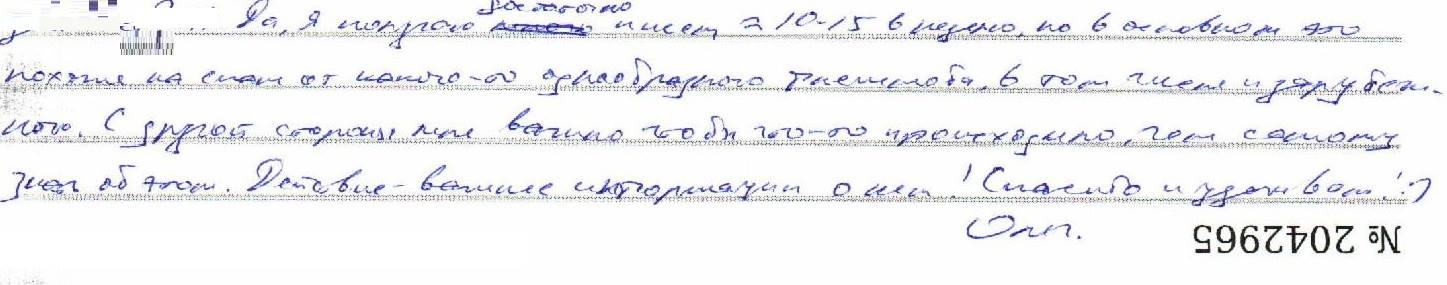 Да, я получаю достаточно писем ≈ 10-15 в неделю, но в основном это
похоже на спам от какого-то однообразного , в том числе и зарубеж-
ного. С другой стороны мне важно чтобы что-то происходило, чем самому
знать об этом. Действие - важнее информации о нем! Спасибо и удачи вам! :)
Олег.
№ 2042965